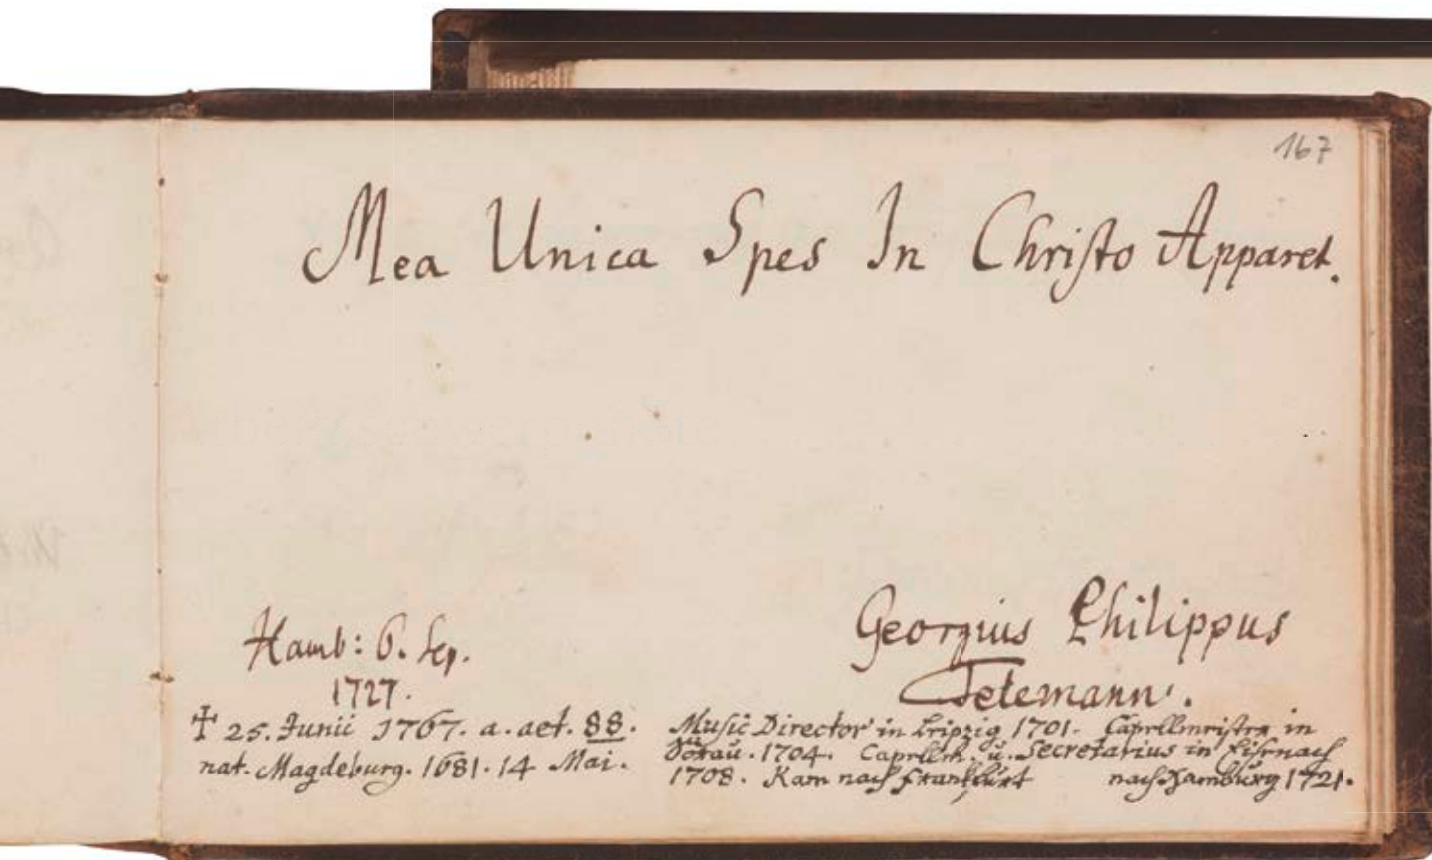 167
Mea Unica Spes In Christo Apparet.
Hamb: 6. Sep.
1727.
Georgius Philippus
Telemann.
✝ 25. Junii 1767. a. aet. 88.
nat. Magdeburg. 1681. 14 Mai.
Music Director in Leipzig 1701. Capellmeister in
Sorau. 1704. Capellm. u. Secretarius in Eisenach
1708. Kam nach Franckfurt nach Hamburg 1721.